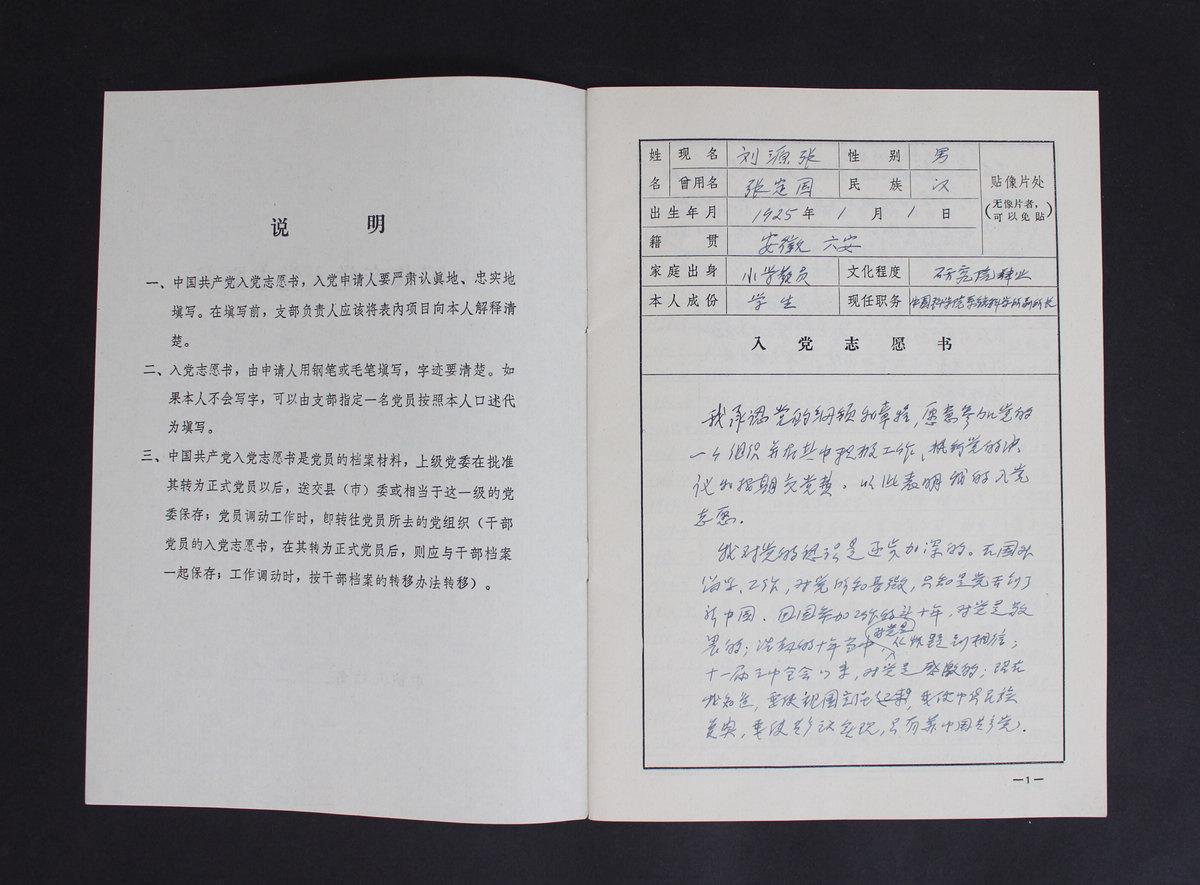 说 明
一、中国共产党入党志愿书，入党申请人要严肃认真地、忠实地
填写。在填写前，支部负责人应该将表内项目向本人解释清
楚。
二、入党志愿书，由申请人用钢笔或毛笔填写，字迹要清楚。如
果本人不会写字，可以由支部指定一名党员按照本人口述代
为填写。
三、中国共产党入党志愿书是党员的档案材料，上级党委在批准
其转为正式党员以后，送交县（市）委或相当于这一级的党
委保存；党员调动工作时，即转往党员所去的党组织（干部
党员的入党志愿书，在其转为正式党员后，则应与干部档案
一起保存；工作调动时，按干部档案的转移办法转移）。
姓名 现名 刘源张 性别 男
曾用名 张定国 民族 汉
贴像片处
（无像片者，可以免贴）
出生年月 1925年1月1日
籍贯 安徽 六安
家庭出身 小学教员 文化程度 研究院肄业
本人成份 学生 现任职务 中国科学院系统科学所副所长
入党志愿书
我承认党的纲领和章程，愿意参加党的
一个组织并在其中积极工作、执行党的决
议和按期交党费。以此表明我的入党
志愿。
我对党的认识是逐步加深的。在国外
留学、工作，对党所知甚微，只知是党
新中国。回国参加工作的头十年，对党是敬
畏的；浩劫的十年当中对党是从怀疑到相信；
十一届三中全会以来，对党是感激的；现在
我知道，要使祖国，要使中华民族
，要使，只有靠中国共产党。
—1—